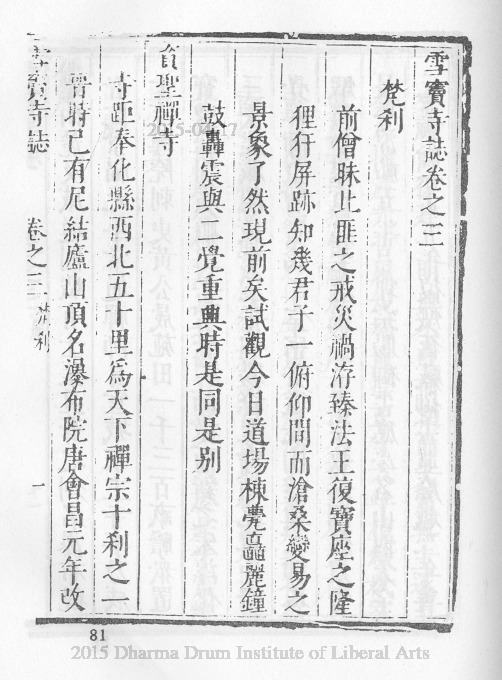 雪竇寺誌卷之三
梵刹
前僧昧比匪之戒災禍洊臻法王復寶座之隆
狸犴屏跡知幾君子一俯仰間而滄桑變易之
景象了然現前矣試觀今日道場棟甍矗麗鐘
鼓轟震與二覺重興時是同是别
資聖禪寺
寺距奉化縣西北五十里爲天下禪宗十刹之一
晉時已有尼結廬山頂名瀑布院唐會昌元年改
雪竇寺誌 卷之三 梵刹 一
81
2015 Dharma Drum Institute of Liberal Arts